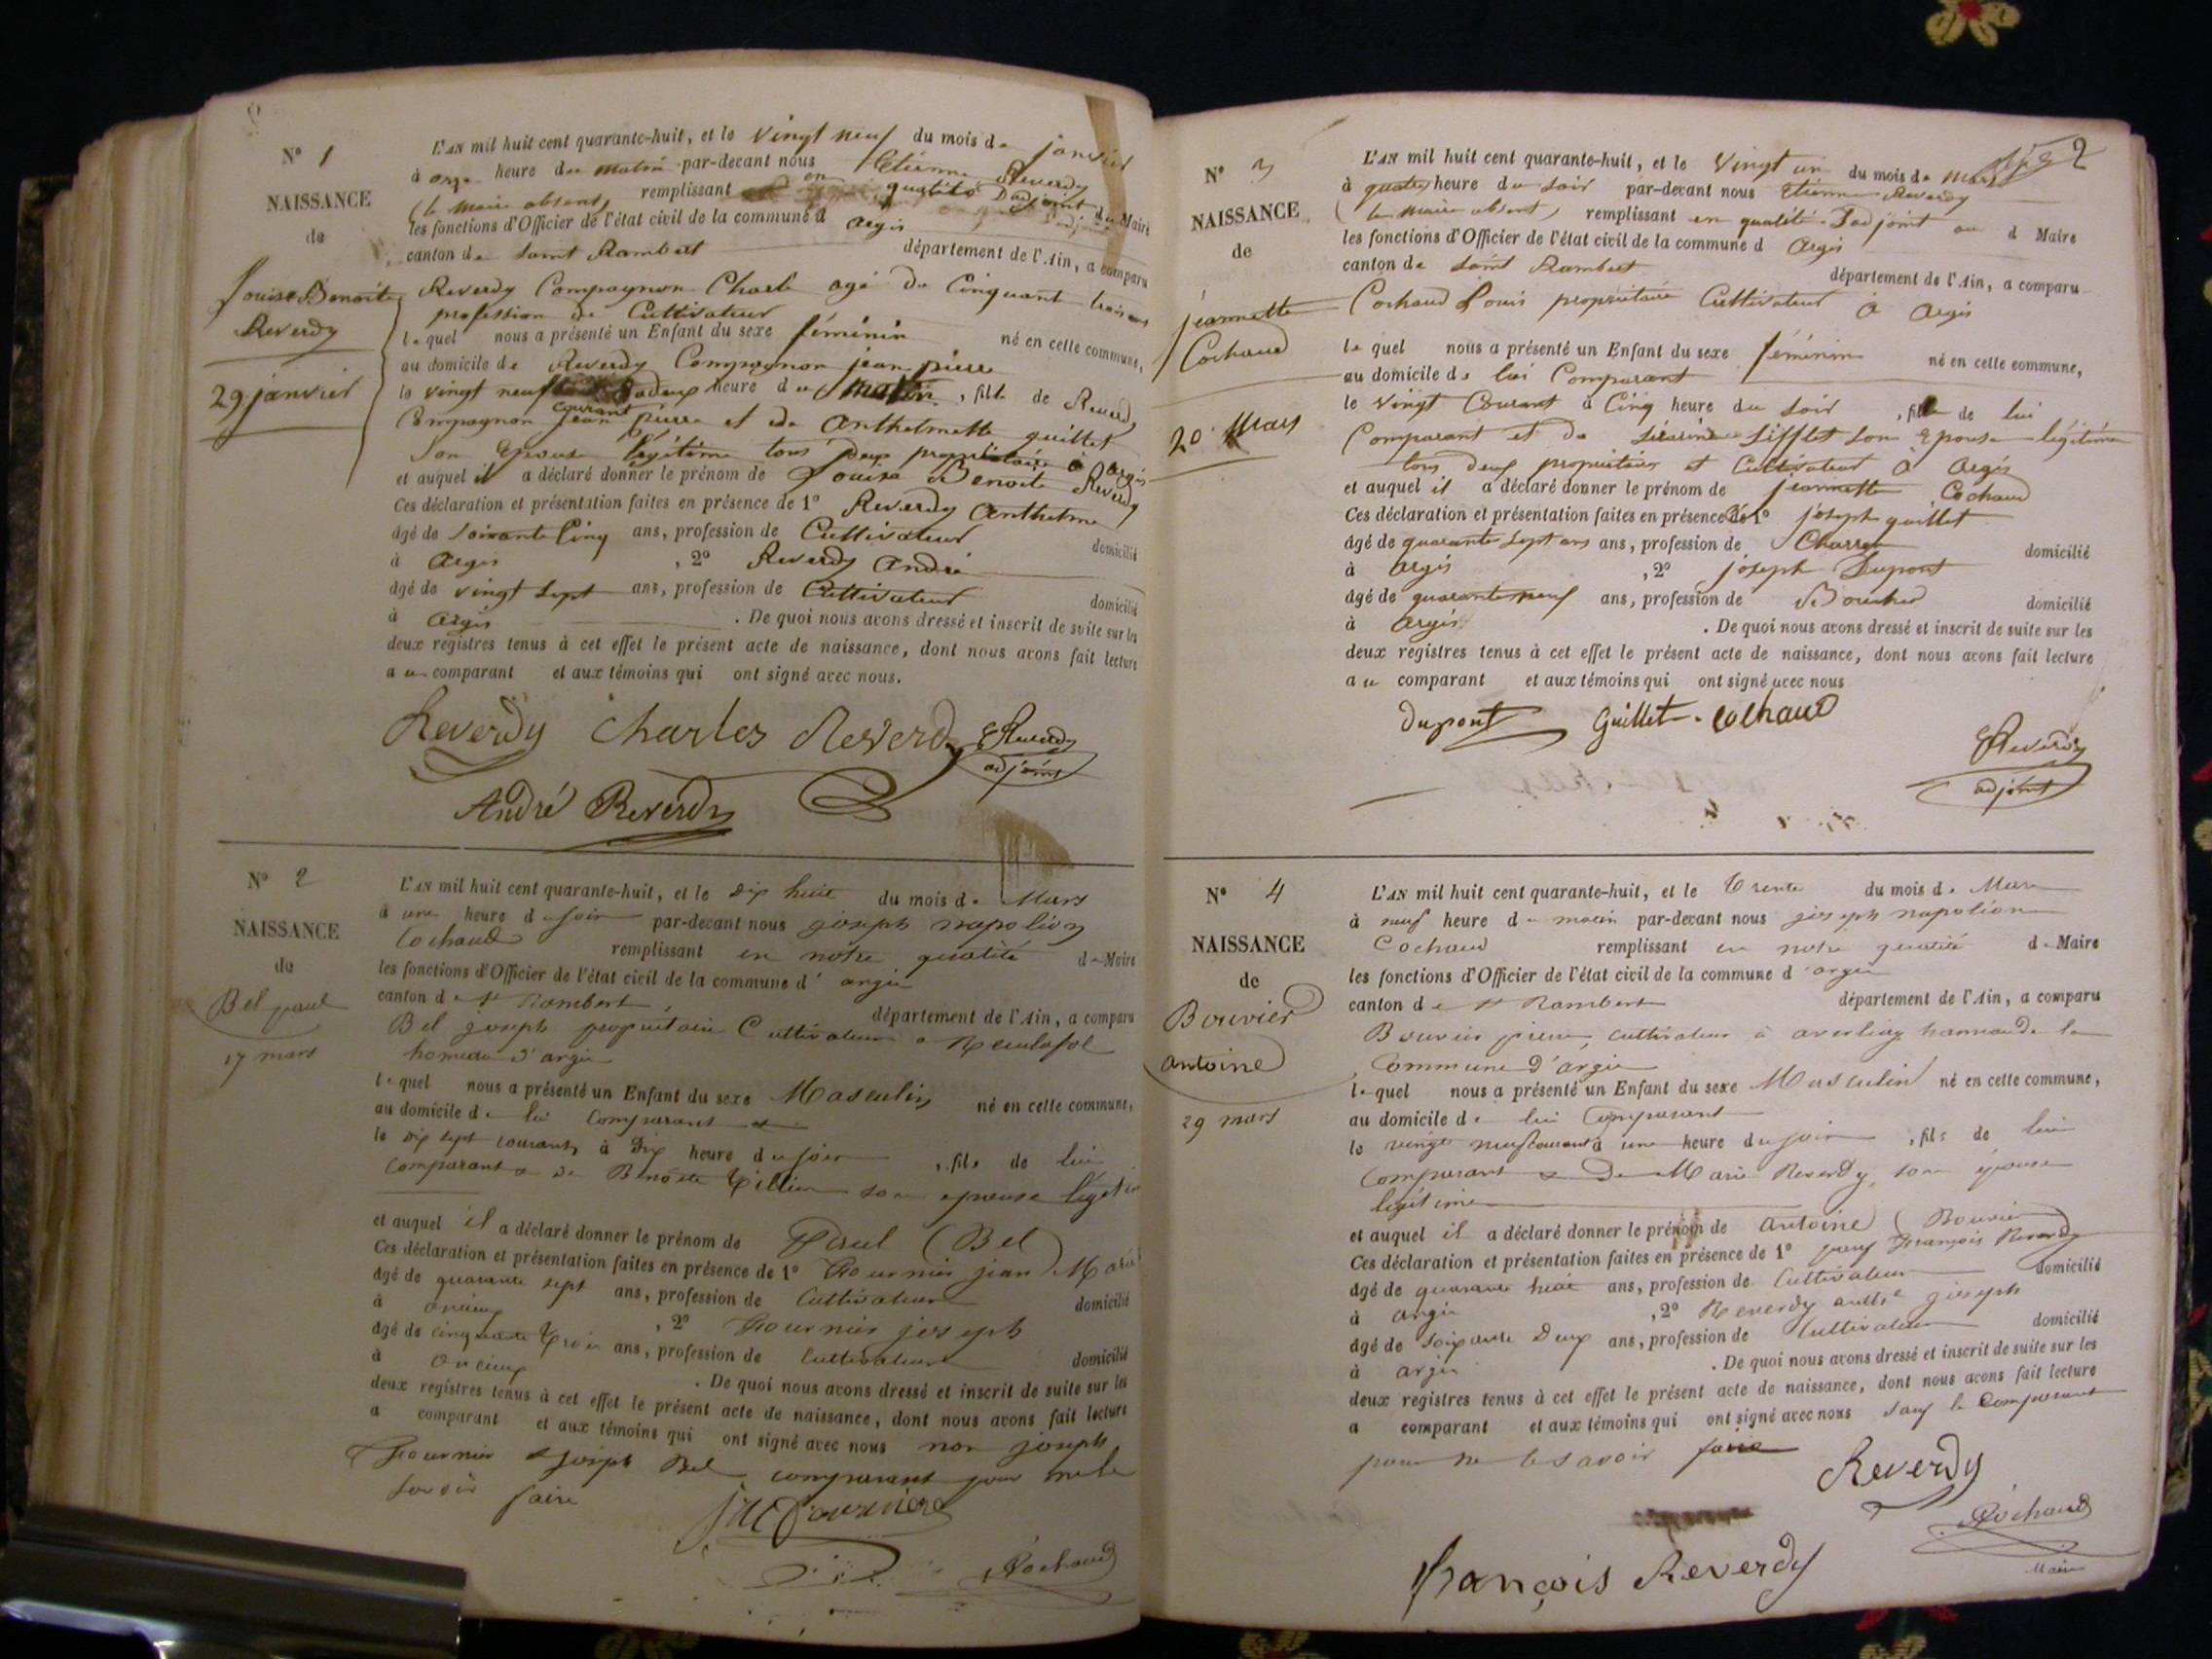 N° 1
NAISSANCE
de
Louise Benoite
Reverdy
29 janvier
L'AN mil huit cent quarante-huit, et le vingt neuf du mois de janvier
à onze heure du matin par-devant nous Etienne Reverdy
(le maire absent) remplissant en qualité D'adjoint du Maire
les fonctions d'Officier de l'état civil de la commune d argis
canton de Saint Rambert département de l'Ain, a comparu
Reverdy Compagnon Charle agé de Cinquant trois ans
profession de Cultivateur
lequel nous a présenté un Enfant du sexe féminin né en cette commune,
au domicile de Reverdy Compagnon jean pierre
le vingt neuf courant a deux heure du matin, fille de Reverdy
Compagnon jean pierre et de Anthelmette guillet
Son Epouse légitime tous deux propriétaire à argis
et auquel il a déclaré donner le prénom de Louise Benoite Reverdy
Ces déclaration et présentation faites en présence de 1° Reverdy Anthelme
âgé de soixante Cinq ans, profession de Cultivateur domicilié
à argis, 2° Reverdy André
âgé de vingt sept ans, profession de Cultivateur domicilié
à argis. De quoi nous avons dressé et inscrit de suite sur les
deux registres tenus à cet effet le présent acte de naissance, dont nous avons fait lecture
au comparant et aux témoins qui ont signé avec nous.
Reverdy Charles Reverdy EReverdy
adjoint
André Reverdy
N° 2
NAISSANCE
de
Bel paul
17 mars
L'AN mil huit cent quarante-huit, et le dix huit du mois de Mars
à une heure du soir par-devant nous joseph napoléon
Cochaud remplissant en notre qualité de Maire
les fonctions d'Officier de l'état civil de la commune d' argis
canton de St Rambert département de l'Ain, a comparu
Bel joseph propriétaire Cultivateur a Reculafol
hameau d'argis
lequel nous a présenté un Enfant du sexe Masculin né en cette commune,
au domicile de lui Comparant
le dix sept courant, à Dix heure du soir, fils de lui
Comparant & de Benoite Tillier son epouse légitime
et auquel il a déclaré donner le prénom de Paul (Bel)
Ces déclaration et présentation faites en présence de 1° Fournier jean Marie
âgé de quarante sept ans, profession de Cultivateur domicilié
à oncieux, 2° Fournier joseph
âgé de cinquante Trois ans, profession de Cultivateur domicilié
à oncieux. De quoi nous avons dressé et inscrit de suite sur les
deux registres tenus à cet effet le présent acte de naissance, dont nous avons fait lecture
a comparant et aux témoins qui ont signé avec nous non joseph
Fournier & joseph Bel comparant pour ne le
savoir faire
JM Fournier
Cochaud
2
N° 3
NAISSANCE
de
jeannette
Cochaud
20 Mars
L'AN mil huit cent quarante-huit, et le vingt un du mois de mars
à quatre heure du soir par-devant nous Etienne Reverdy
(le maire absent) remplissant en qualité D'adjoint au d Maire
les fonctions d'Officier de l'état civil de la commune d Argis
canton de Saint Rambert département de l'Ain, a comparu
Cochaud Louis propriétaire Cultivateur à Argis
lequel nous a présenté un Enfant du sexe féminin né en cette commune,
au domicile de lui Comparant
le vingt Courant à Cinq heure du soir, fille de lui
Comparant et de Sifflet son Epouse légitime
tous deux propriétaires et Cultivateur à Argis
et auquel il a déclaré donner le prénom de jeannette Cochaud
Ces déclaration et présentation faites en présence de 1° joseph guillet
âgé de quarante sept ans ans, profession de domicilié
à argis, 2° joseph Dupont
âgé de quarante neuf ans, profession de Boucher domicilié
à argis. De quoi nous avons dressé et inscrit de suite sur les
deux registres tenus à cet effet le présent acte de naissance, dont nous avons fait lecture
au comparant et aux témoins qui ont signé avec nous
Dupont Guillet Cochaud
EReverdy
adjoint
N° 4
NAISSANCE
de
Bouvier
antoine
29 mars
L'AN mil huit cent quarante-huit, et le Trente du mois de Mars
à neuf heure du matin par-devant nous joseph napoléon
Cochaud remplissant en notre qualité de Maire
les fonctions d'Officier de l'état civil de la commune d'argis
canton de St Rambert département de l'Ain, a comparu
Bouvier pierre, cultivateur à hameau de la
Commune d'argis
lequel nous a présenté un Enfant du sexe Masculin né en cette commune,
au domicile de lui Comparant
le vingt neuf courant à une heure du soir, fils de lui
Comparant & De Marie Reverdy, son épouse
légitime
et auquel il a déclaré donner le prénom de antoine (Bouvier)
Ces déclaration et présentation faites en présence de 1° François Reverdy
âgé de quarante huit ans, profession de Cultivateur domicilié
à argis, 2° Reverdy joseph
âgé de soixante Deux ans, profession de Cultivateur domicilié
à argis. De quoi nous avons dressé et inscrit de suite sur les
deux registres tenus à cet effet le présent acte de naissance, dont nous avons fait lecture
a comparant et aux témoins qui ont signé avec nous sauf le Comparant
pour ne le savoir faire
Reverdy
Cochaud
Maire
françois Reverdy